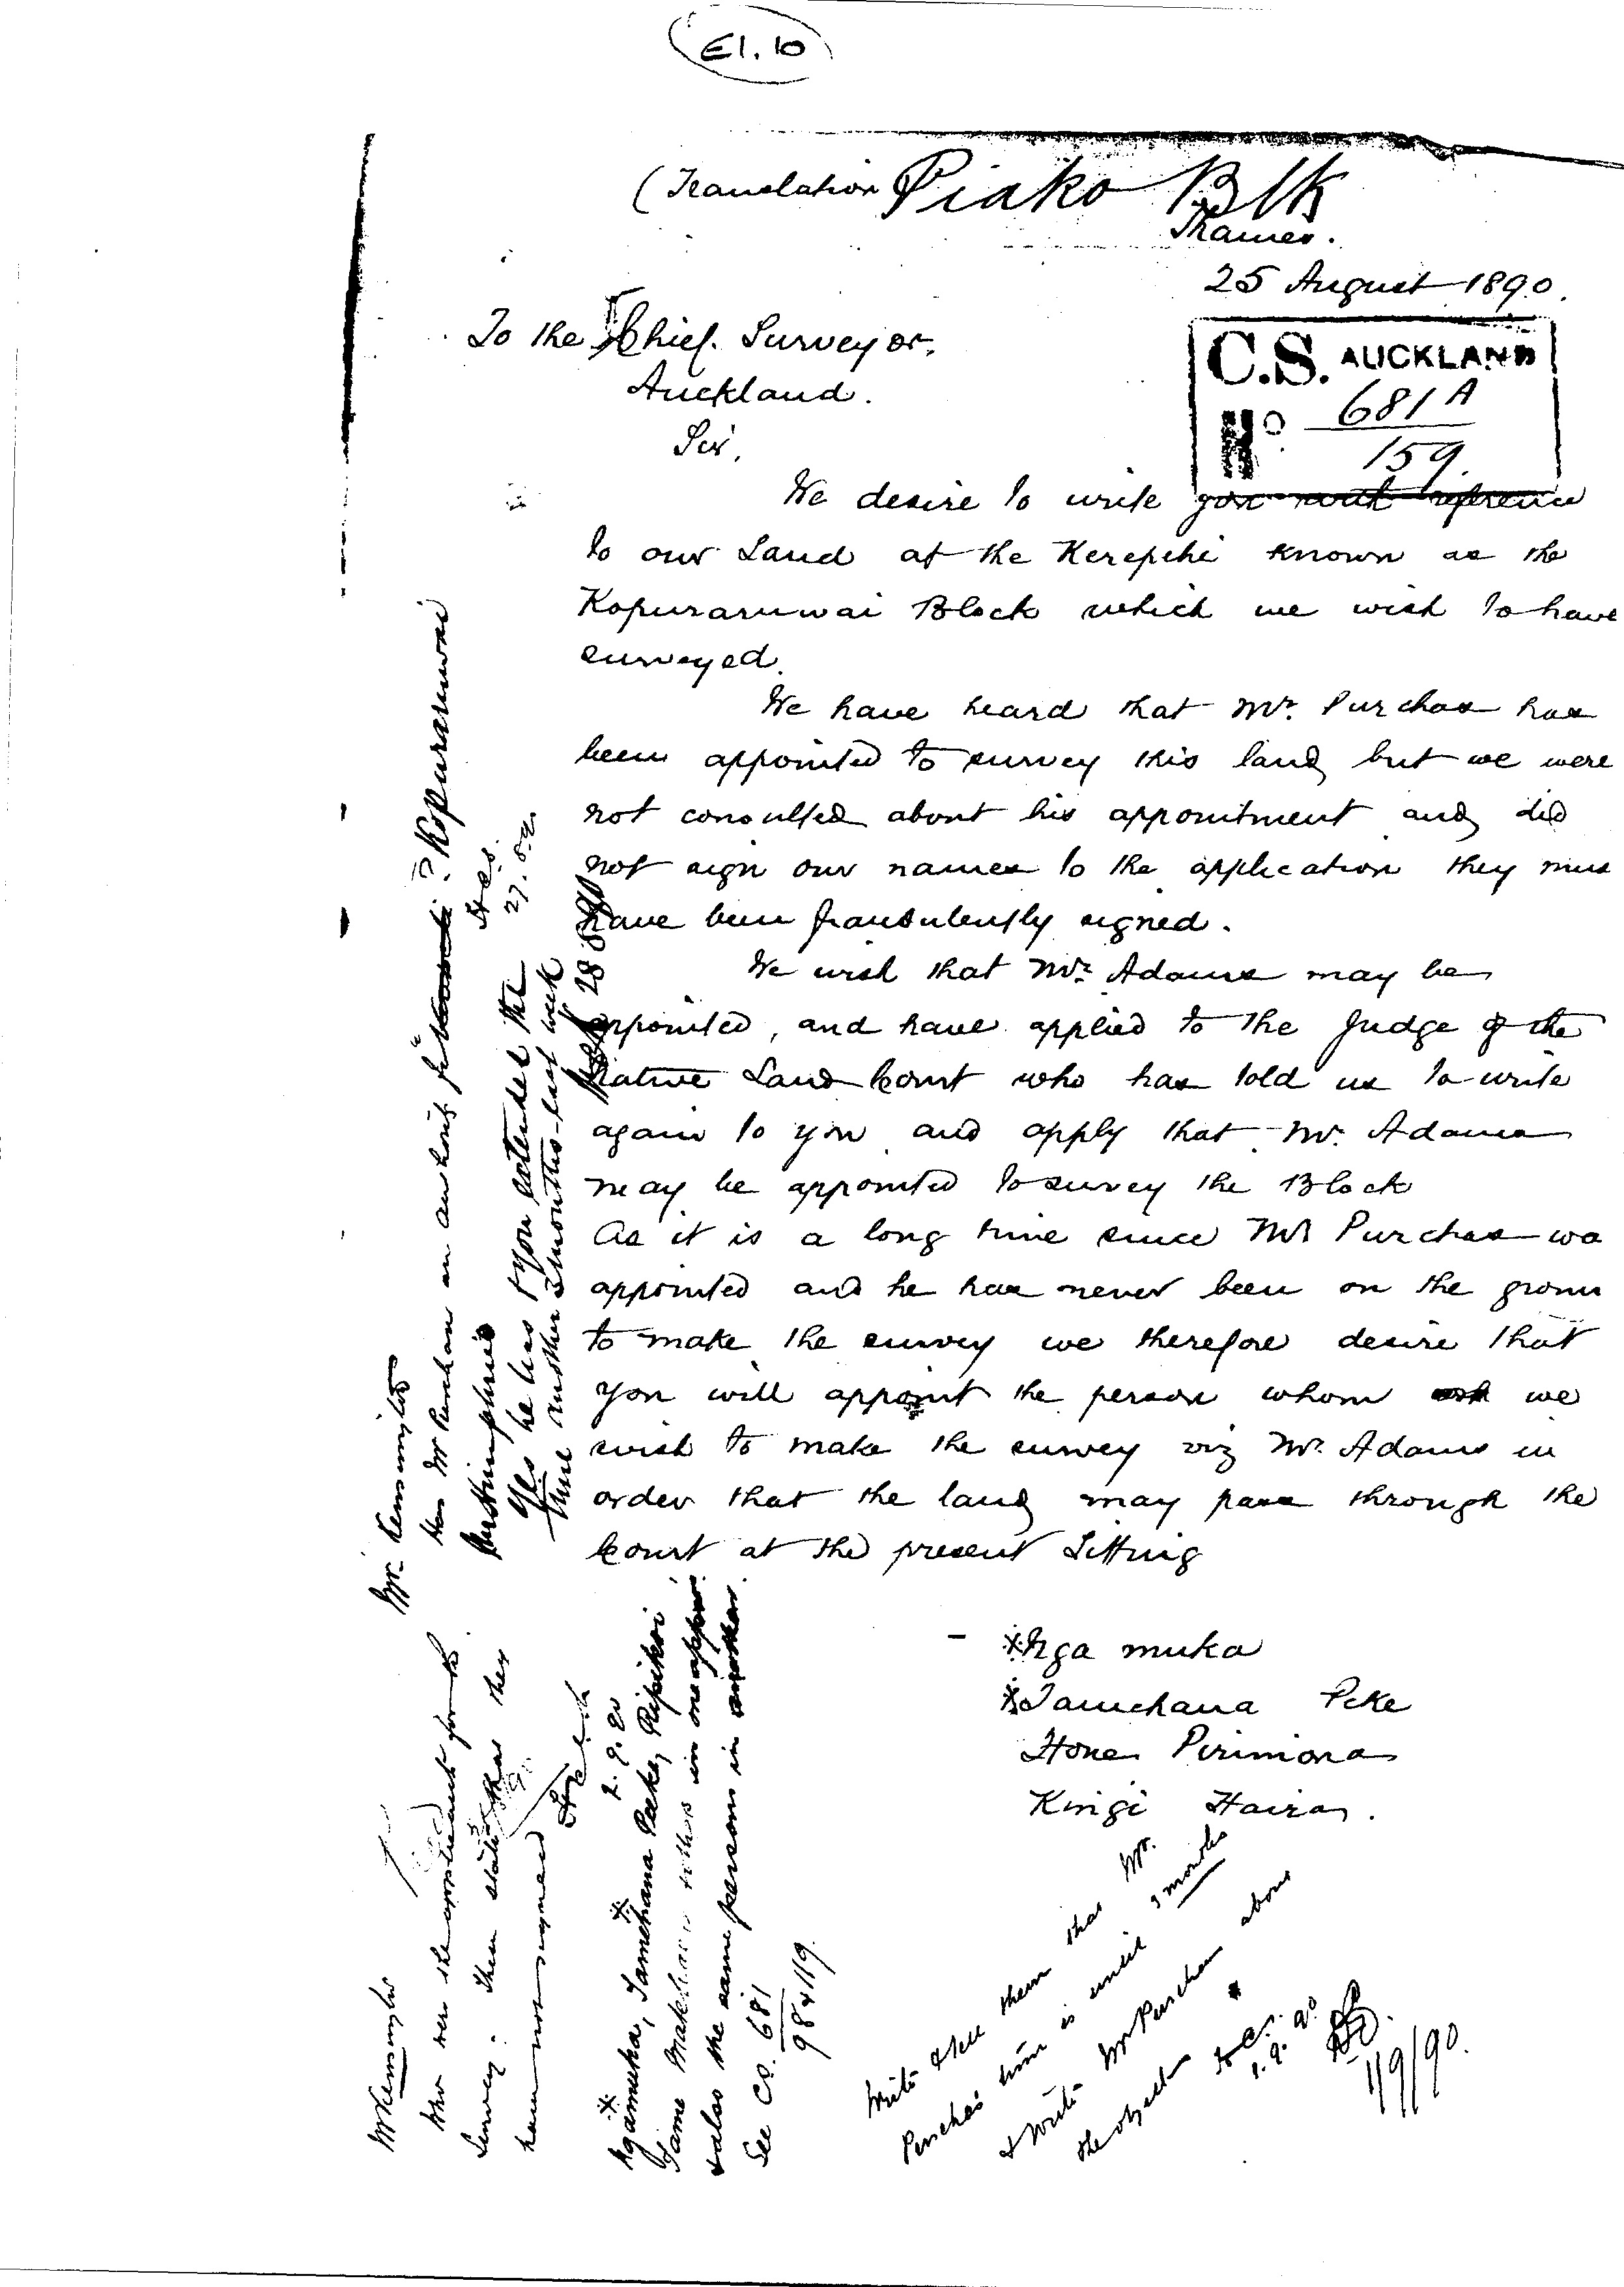 E1.10
(Translation Piako Blk
Thames.
25 August 1890.
To the Chief Surveyor,
Auckland.
C.S. AUCKLAND
No. 681A
159.
Sir,
We desire to write you with reference
to our Land at the Kerepehi known as the
Kopuraruwai Block which we wish to have
surveyed.
We have heard that Mr. Purchas has
been appointed to survey this land but we were
not consulted about his appointment and did
not sign our names to the application they mus
have been fraudulently signed.
We wish that Mr. Adams may be
appointed, and have applied to the Judge of the
Native Land Court who has told us to write
again to you and apply that Mr. Adams
may be appointed to survey the Block
As it is a long time since Mr Purchas wa
appointed and he has never been on the groun
to make the survey we therefore desire that
you will appoint the person whom we
wish to make the survey viz Mr. Adams in
order that the land may pass through the
Court at the present Sitting
Nga muka
Tamehana Peke
Hone Pirimona
Kingi Haira.
Mr. Kensington
Has Mr Purchas an authority for Kopuraruwai
27.8.90
Mr Humphries
Yes he has & you extended the
time another 3 months last week
28 8 90
Mr Kensington
Who were the applicants for the
Survey: These state that they
have not signed
2.9.90
Ngamuka, Tamehana Peke, Pipikoi
& also the same persons in another
See CS. 681
98 & 119.
Write & tell them that Mr.
Purchas time is until 3 months
& write Mr Purchas about
the objection
1.9.90
1/9/90.